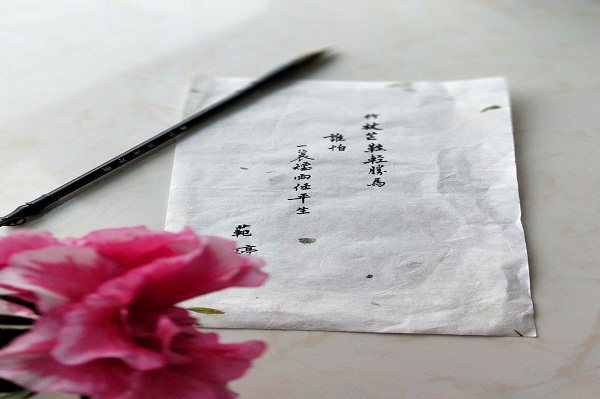 竹杖芒鞋輕勝馬
誰怕
一蓑煙雨任平生
範亭